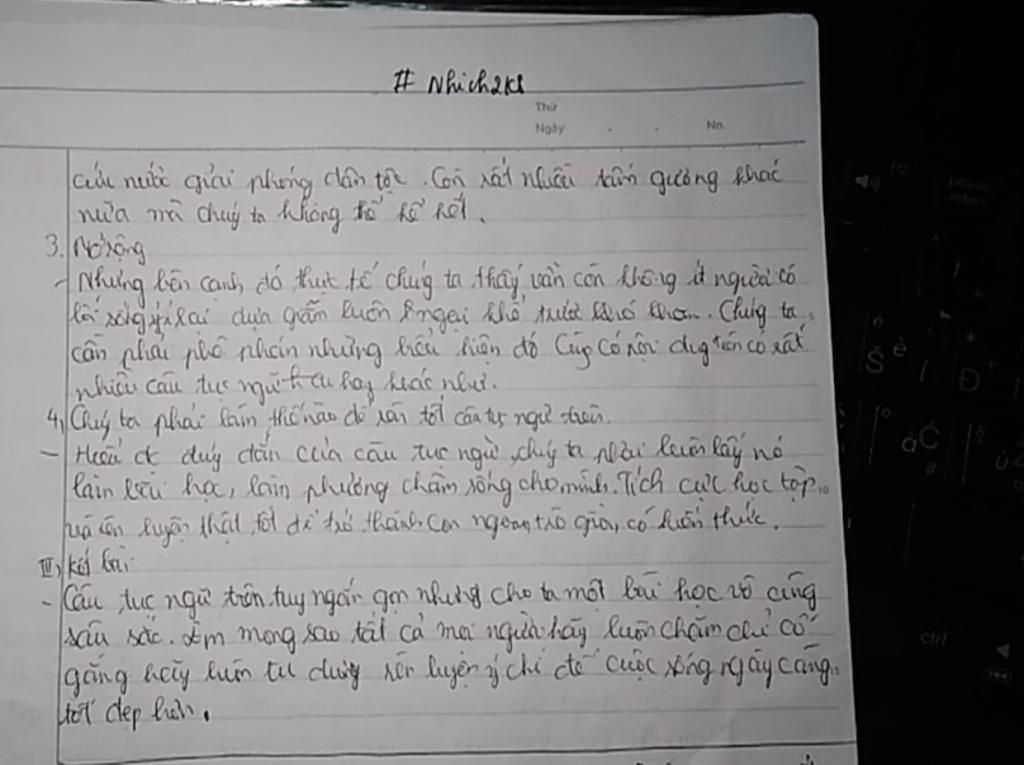 # Nhich2k8
Thứ
Ngày . . No.
cứu nước giải phóng dân tộc. Còn rất nhiều tấm gương khác
nữa mà chúng ta không thể kể hết.
3. Mở rộng
- Nhưng bên cạnh đó thực tế chúng ta thấy vẫn còn không ít người có
lối sống ỷ lại dựa giẫm luôn ngại khổ trước khó khăn. Chúng ta
cần phải phê phán những biểu hiện đó Cũng có nội dung trên có rất
nhiều câu tục ngữ hay khác như.
4, Chúng ta phải làm thế nào để rèn tốt câu tục ngữ trên.
- Hiểu đc đúng đắn của câu tục ngữ, chúng ta phải luôn lấy nó
làm bài học, làm phương châm sống cho mình. Tích cực học tập
và rèn luyện thật tốt để trở thành con ngoan, trò giỏi, có kiến thức.
III, Kết bài
- Câu tục ngữ trên tuy ngắn gọn nhưng cho ta một bài học vô cùng
sâu sắc. Em mong sao tất cả mọi người hãy luôn chăm chỉ cố
gắng hãy luôn tu dưỡng rèn luyện ý chí để cuộc sống ngày càng
tốt đẹp hơn.
pause
ctrl
Š
è
Đ
*
°
à
Ć
#
§
ù